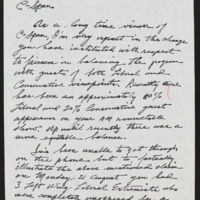 C-Span
As a long time viewer of
C-Span, I'm very upset in the change
you have instituted with respect
to fairness in balancing the program
with guests of both liberal and
Conservative viewpoints. Recently there
has been an approximately 80%
liberal and 20% Conservative guest
appearance on your AM roundtable
show. Up until recently there was a
more equitable balance.
I've been unable to get through
on the phone, but to partially
illustrate the above mentioned claim
on Monday 21 August you had
3 Left Wing Liberal Extremists who
were completely unopposed by a